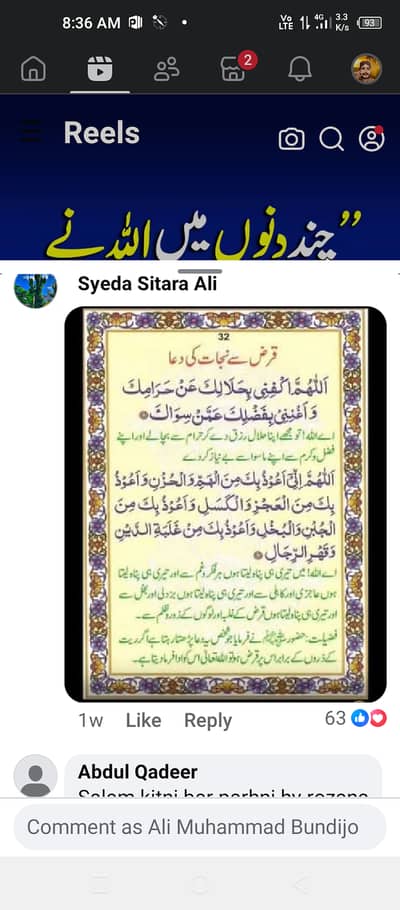 8:36 AM
Vo LTE 4G 3.3 K/s 93
2
Reels
”چند دنوں میں اللہ نے
Syeda Sitara Ali
32
قرض سے نجات کی دعا
اَللّٰهُمَّ اكْفِنِيْ بِحَلَالِكَ عَنْ حَرَامِكَ
وَاَغْنِنِيْ بِفَضْلِكَ عَمَّنْ سِوَاكَ
اے اللہ! تو مجھے اپنا حلال رزق دے کر حرام سے بچا لے اور اپنے
فضل و کرم سے اپنے ماسوا سے بے نیاز کر دے
اَللّٰهُمَّ اِنِّيْ اَعُوْذُ بِكَ مِنَ الْهَمِّ وَالْحُزْنِ وَاَعُوْذُ
بِكَ مِنَ الْعَجْزِ وَالْكَسَلِ وَاَعُوْذُ بِكَ مِنَ
الْجُبْنِ وَالْبُخْلِ وَاَعُوْذُ بِكَ مِنْ غَلَبَةِ الدَّيْنِ
وَقَهْرِ الرِّجَالِ
اے اللہ! میں تیری ہی پناہ لیتا ہوں ہر فکر و غم سے اور تیری ہی پناہ لیتا
ہوں عاجزی اور کاہلی سے اور تیری ہی پناہ لیتا ہوں بزدلی اور بخل سے
اور تیری ہی پناہ لیتا ہوں قرض کے غلبہ اور لوگوں کے زور و ظلم سے۔
فضیلت: حضور ﷺ نے فرمایا جو شخص یہ دعا پڑھتا رہتا ہے اگر ریت
کے ذروں کے برابر اس پر قرض ہو تو اللہ تعالیٰ اس کو ادا فرما دیتا ہے۔
1w Like Reply 63
Abdul Qadeer
Salam kitni bar parhni hy rozana
Comment as Ali Muhammad Bundijo